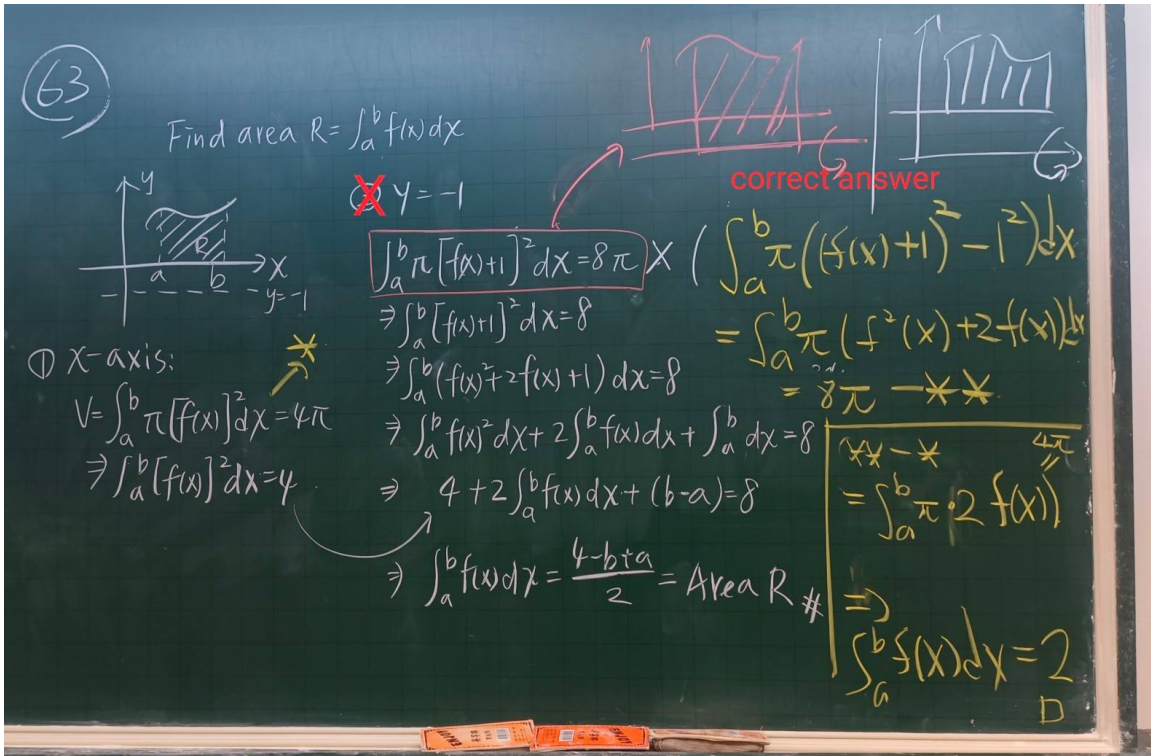 63
Find area R = ∫ₐᵇ f(x) dx
y
R
a b x
-1 y=-1
① x-axis:
V = ∫ₐᵇ π[f(x)]² dx = 4π
*
⇒ ∫ₐᵇ [f(x)]² dx = 4
X y = -1
∫ₐᵇ π[f(x)+1]² dx = 8π X
⇒ ∫ₐᵇ [f(x)+1]² dx = 8
⇒ ∫ₐᵇ (f(x)² + 2f(x) + 1) dx = 8
⇒ ∫ₐᵇ f(x)² dx + 2∫ₐᵇ f(x) dx + ∫ₐᵇ dx = 8
⇒ 4 + 2∫ₐᵇ f(x) dx + (b-a) = 8
⇒ ∫ₐᵇ f(x) dx = (4-b+a)/2 = Area R #
correct answer
( ∫ₐᵇ π((f(x)+1)² - 1²) dx
= ∫ₐᵇ π(f²(x) + 2f(x)) dx
= 8π — **
** - * 4π
= ∫ₐᵇ π·2 f(x))
⇒
∫ₐᵇ f(x) dx = 2
D
ENJOY